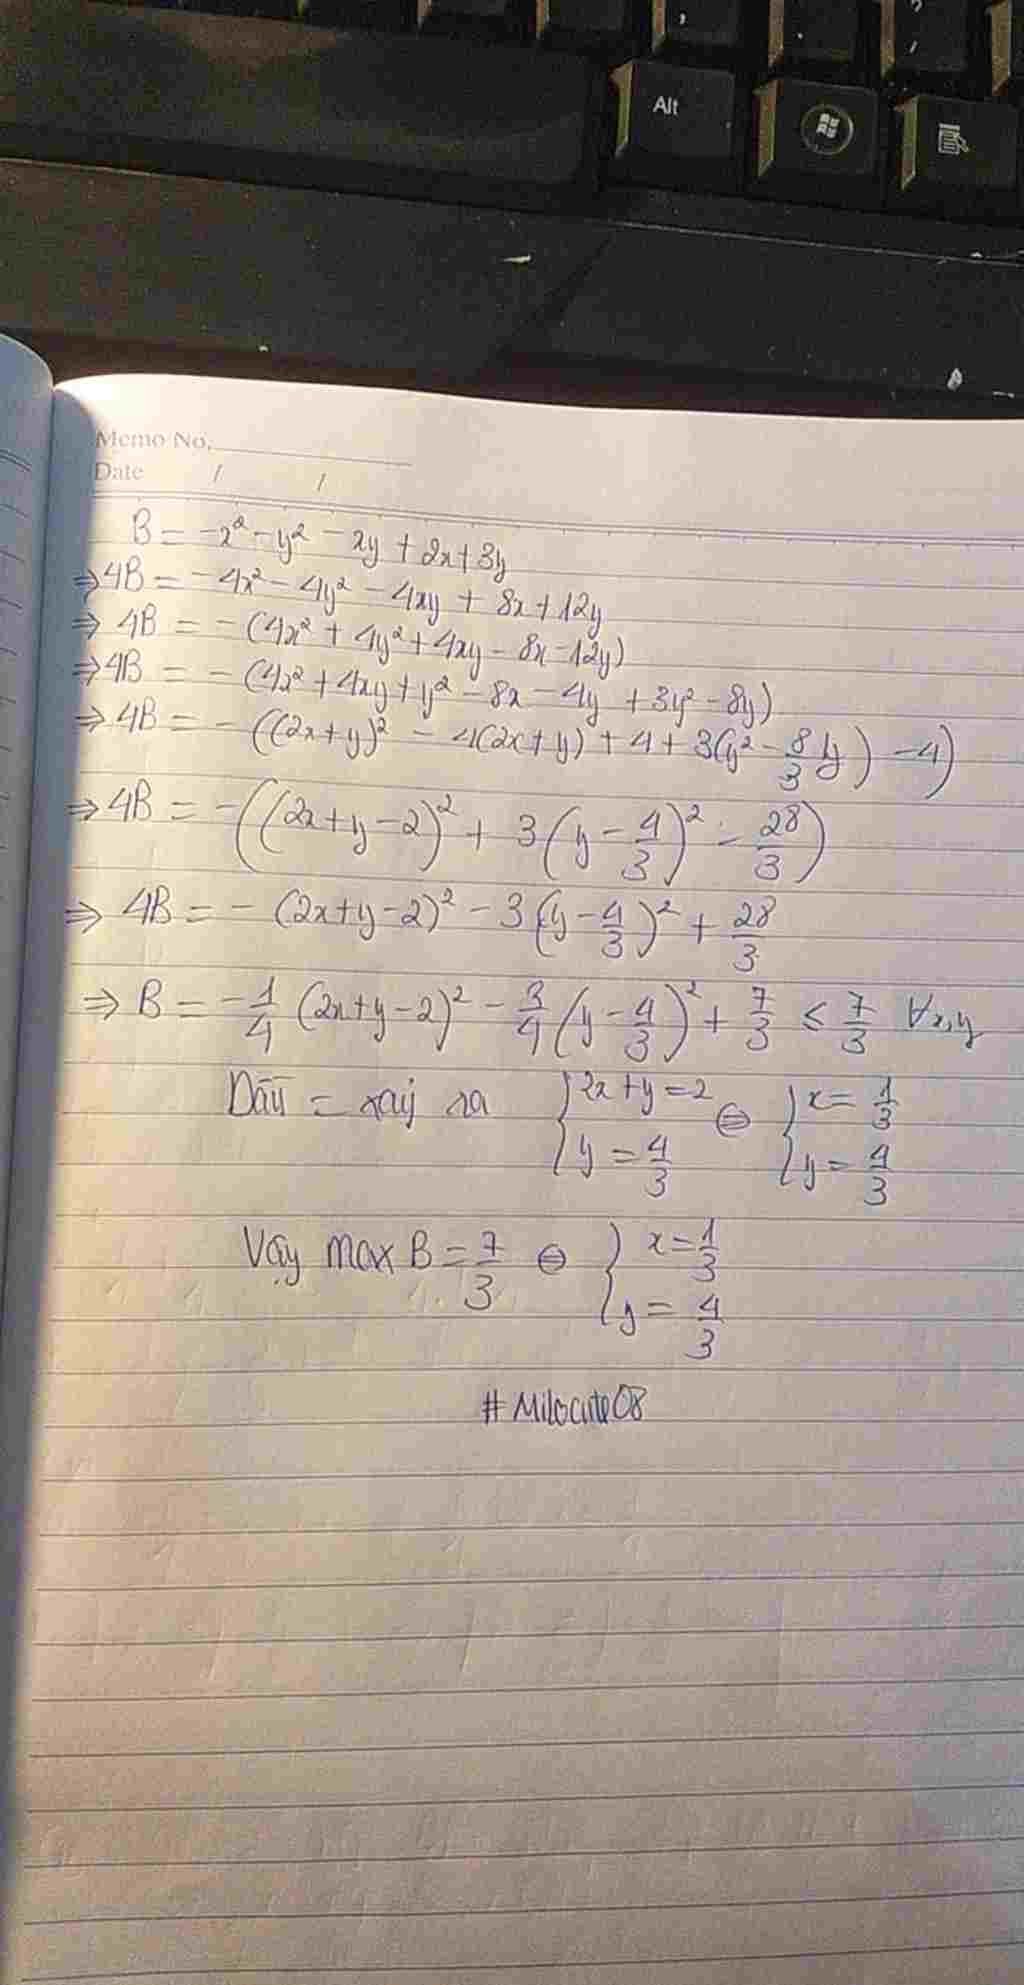 Alt
Memo No.
Date / /
B = -x² - y² - xy + 2x + 3y
⇒ 4B = -4x² - 4y² - 4xy + 8x + 12y
⇒ 4B = -(4x² + 4y² + 4xy - 8x - 12y)
⇒ 4B = -(4x² + 4xy + y² - 8x - 4y + 3y² - 8y)
⇒ 4B = -((2x+y)² - 4(2x+y) + 4 + 3(y² - 8/3 y) - 4)
⇒ 4B = -((2x+y-2)² + 3(y - 4/3)² - 28/3)
⇒ 4B = -(2x+y-2)² - 3(y - 4/3)² + 28/3
⇒ B = -1/4 (2x+y-2)² - 3/4 (y - 4/3)² + 7/3 ≤ 7/3 ∀x,y
Dấu = xảy ra { 2x+y=2 ⇔ { x = 1/3
y = 4/3 y = 4/3
Vậy max B = 7/3 ⇔ { x = 1/3
y = 4/3
# Milocute08